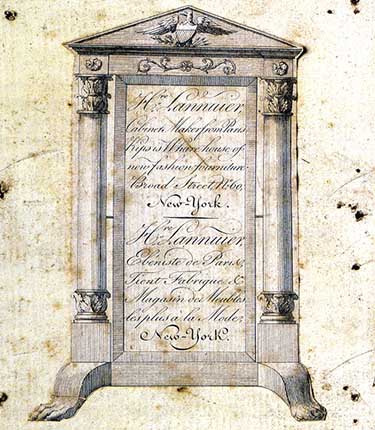 Hre Lannuier,
Cabinet Maker from Paris
Kips is Whare house of
new fashion fourniture
Broad Street, No 60,
New-York.
Hre Lannuier,
Ebéniste de Paris,
Tient Fabrique &
Magasin de Meubles
les plus a la Mode,
New-York.